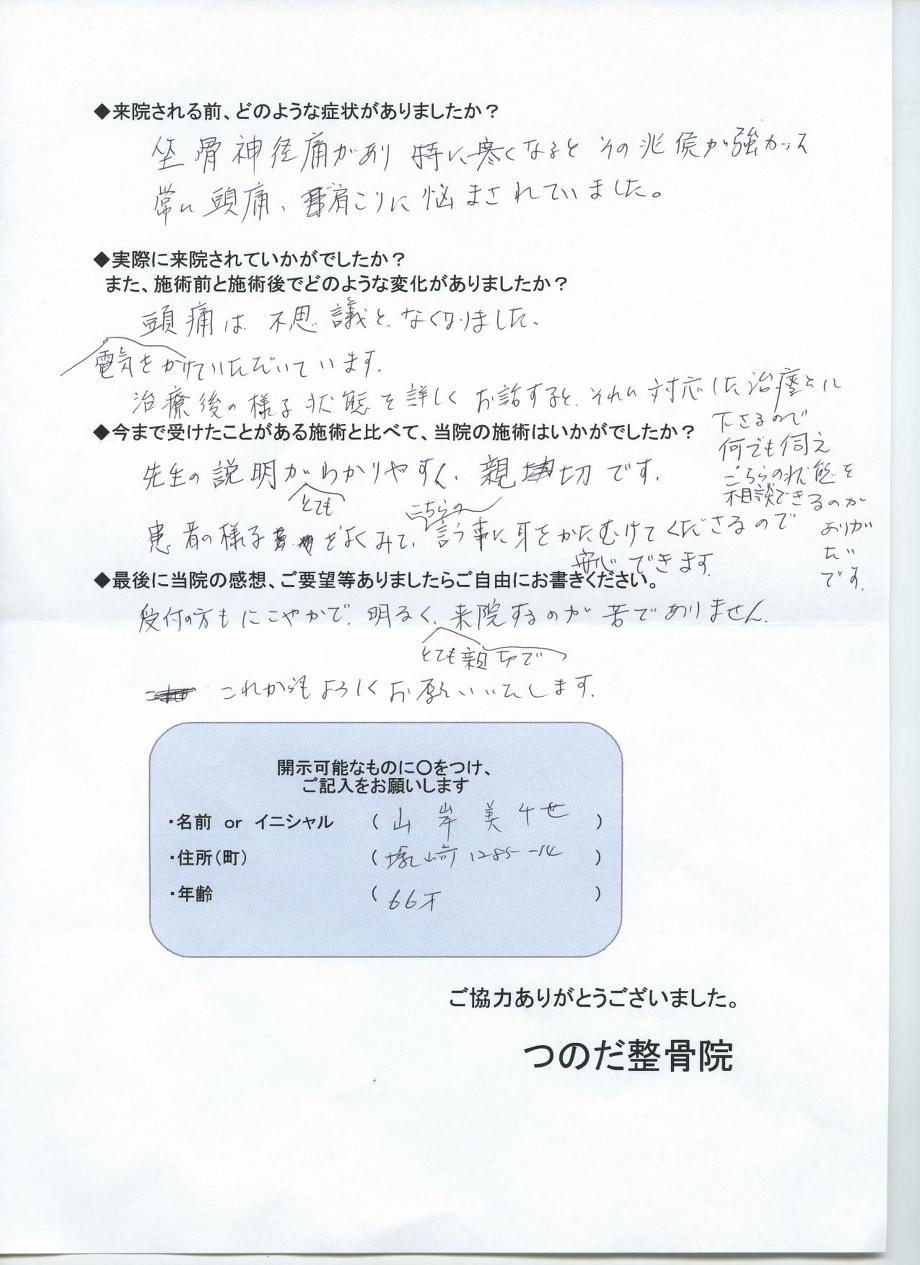 ◆来院される前、どのような症状がありましたか?
坐骨神径痛があり 特に寒くなると その兆候が強かって
常に頭痛、肩こりに悩まされていました。
◆実際に来院されていかがでしたか?
また、施術前と施術後でどのような変化がありましたか?
頭痛は不思議と、なくなりました、
電気をかけていただいています。
治療後の様子状態を詳しくお話すると、それに対応した治療をし
下さるので
何でも伺え
こちらの状態を
相談できるのが
ありが
たい
です。
◆今まで受けたことがある施術と比べて、当院の施術はいかがでしたか?
先生の説明がわかりやすく、親切です。
とても
こちらの
患者の様子をよくみて、言う事に耳をかたむけてくださるので
安心できます。
◆最後に当院の感想、ご要望等ありましたらご自由にお書きください。
受付の方もにこやかで、明るく、来院するのが苦でありません。
とても親切で
これからもよろしくお願いいたします。
開示可能なものに〇をつけ、
ご記入をお願いします
・名前 or イニシャル ( 山岸美千世 )
・住所(町) ( 塚崎1285-14 )
・年齢 ( 66才 )
ご協力ありがとうございました。
つのだ整骨院